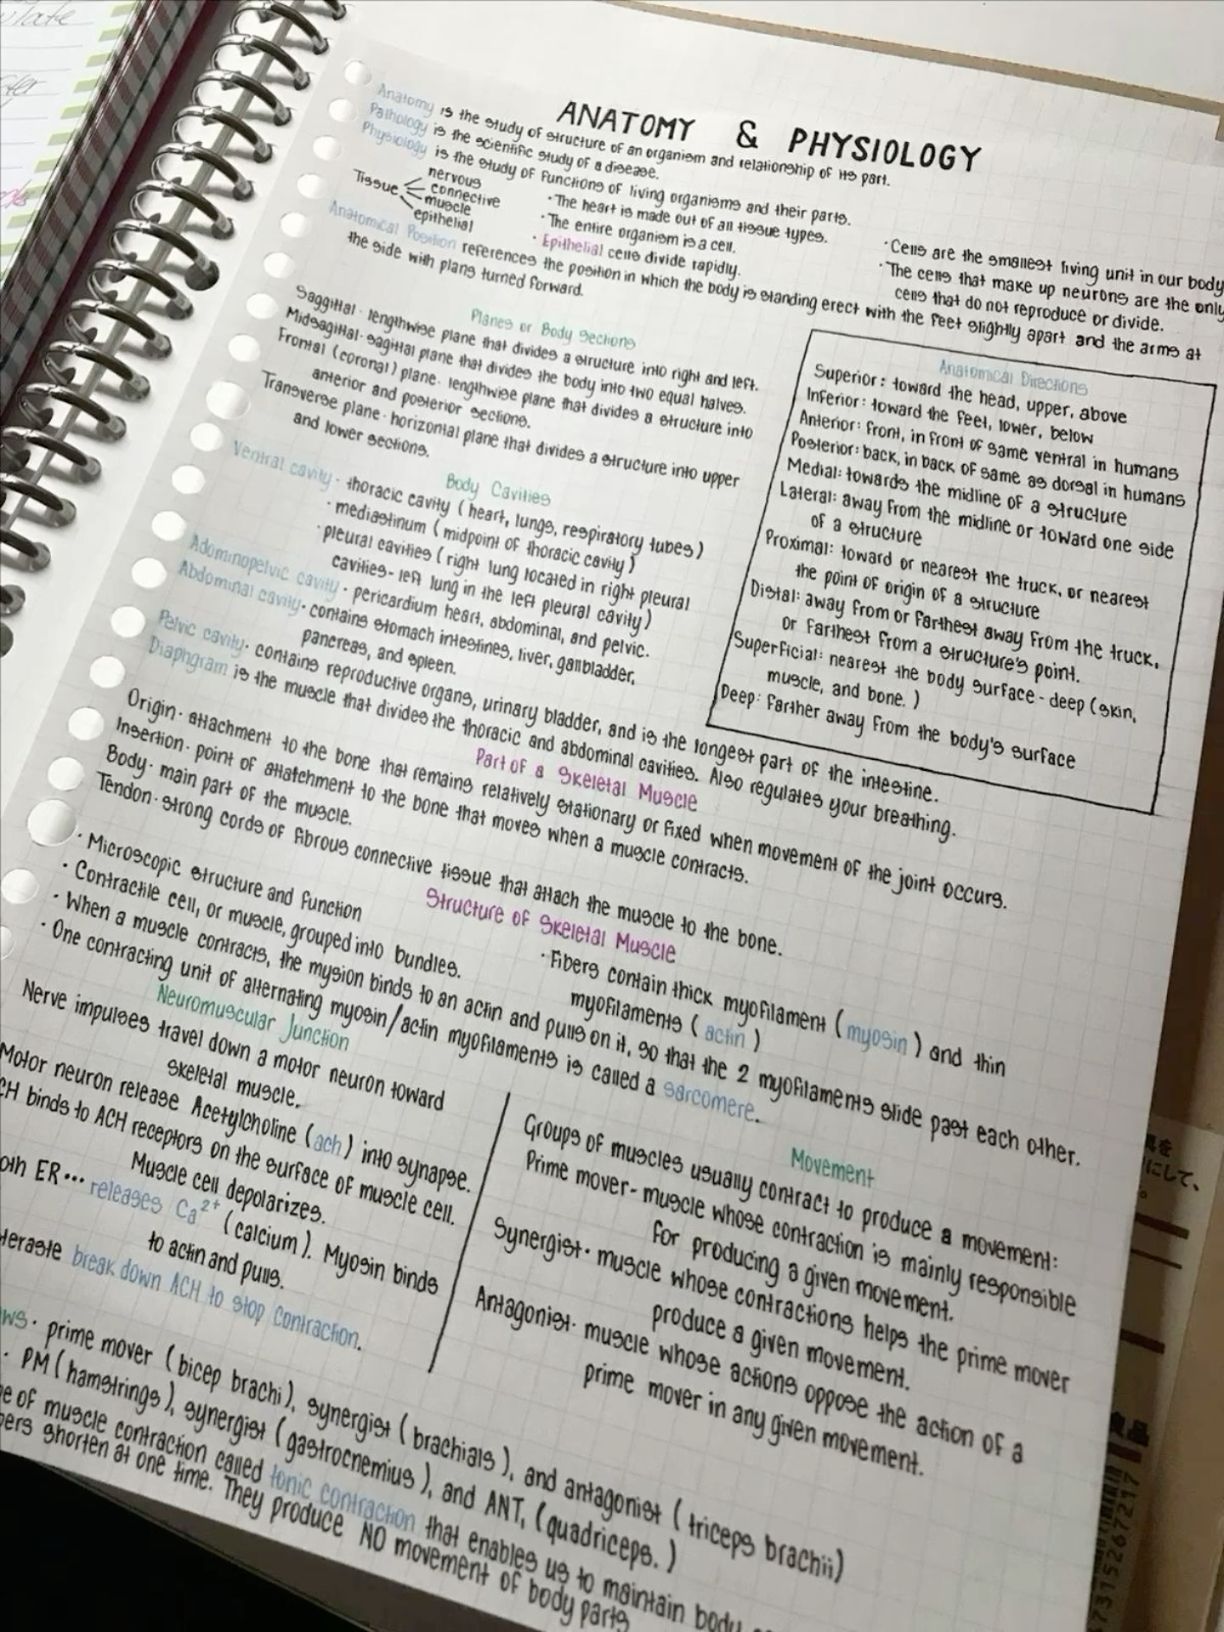 ANATOMY & PHYSIOLOGY
Anatomy is the study of structure of an organism and relationship of its part.
Pathology is the scientific study of a disease.
Physiology is the study of functions of living organisms and their parts.
Tissue
nervous
connective
muscle
epithelial
· The heart is made out of all tissue types.
· The entire organism is a cell.
· Epithelial cells divide rapidly.
· Cells are the smallest living unit in our body
· The cells that make up neurons are the only
cells that do not reproduce or divide.
Anatomical Position references the position in which the body is standing erect with the feet slightly apart and the arms at
the side with plans turned forward.
Planes or Body Sections
Saggittal · lengthwise plane that divides a structure into right and left.
Midsagittal · sagittal plane that divides the body into two equal halves.
Frontal (coronal) plane · lengthwise plane that divides a structure into
anterior and posterior sections.
Transverse plane · horizontal plane that divides a structure into upper
and lower sections.
Anatomical Directions
Superior: toward the head, upper, above
Inferior: toward the feet, lower, below
Anterior: front, in front of same ventral in humans
Posterior: back, in back of same as dorsal in humans
Medial: towards the midline of a structure
Lateral: away from the midline or toward one side
of a structure
Proximal: toward or nearest the truck, or nearest
the point of origin of a structure
Distal: away from or farthest away from the truck,
or farthest from a structure's point.
Superficial: nearest the body surface - deep (skin,
muscle, and bone.)
Deep: farther away from the body's surface
Body Cavities
Ventral cavity · thoracic cavity (heart, lungs, respiratory tubes)
· mediastinum (midpoint of thoracic cavity)
· pleural cavities (right lung located in right pleural
cavities - left lung in the left pleural cavity)
Adominopelvic cavity · pericardium heart, abdominal, and pelvic.
Abdominal cavity · contains stomach intestines, liver, gallbladder,
pancreas, and spleen.
Pelvic cavity · contains reproductive organs, urinary bladder, and is the longest part of the intestine.
Diaphgram is the muscle that divides the thoracic and abdominal cavities. Also regulates your breathing.
Part of a Skeletal Muscle
Origin · attachment to the bone that remaing relatively stationary or fixed when movement of the joint occurs.
Insertion · point of attatchment to the bone that moves when a muscle contracts.
Body · main part of the muscle.
Tendon · strong cords of fibrous connective tissue that attach the muscle to the bone.
Structure of Skeletal Muscle
· Microscopic structure and function
· Contractile cell, or muscle, grouped into bundles.
· Fibers contain thick myofilament (myosin) and thin
myofilaments (actin)
· When a muscle contracts, the mysion binds to an actin and pulls on it, so that the 2 myofilaments slide past each other.
· One contracting unit of alternating myosin/actin myofilaments is called a sarcomere.
Neuromuscular Junction
Nerve impulses travel down a motor neuron toward
skeletal muscle.
Motor neuron release Acetylcholine (ach) into synapse.
CH binds to ACH receptors on the surface of muscle cell.
Muscle cell depolarizes.
oth ER... releases Ca2+ (calcium). Myosin binds
to actin and pulls.
teraste break down ACH to stop contraction.
Movement
Groups of muscles usually contract to produce a movement:
Prime mover - muscle whose contraction is mainly responsible
for producing a given movement.
Synergist · muscle whose contractions helps the prime mover
produce a given movement.
Antagonist · muscle whose actions oppose the action of a
prime mover in any given movement.
ws · prime mover (bicep brachi), synergist (brachials), and antagonist (triceps brachii)
· PM (hamstrings), synergist (gastrocnemius), and ANT, (quadriceps.)
e of muscle contraction called tonic contraction that enables us to maintain body
bers shorten at one time. They produce NO movement of body parts